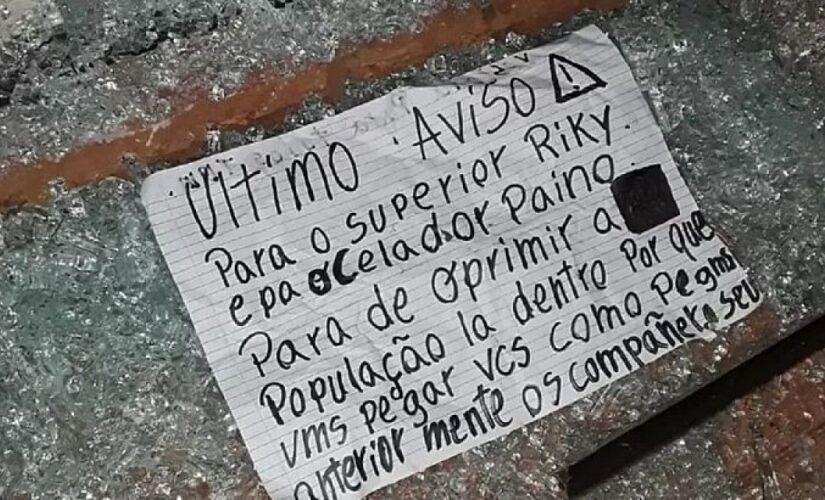 Ultimo Aviso
Para o superior Riky.
e pa o celador Paino.
Para de oprimir a
População la dentro Por que
vms pegar vcs como Pegms
anterior mente os compañero seu